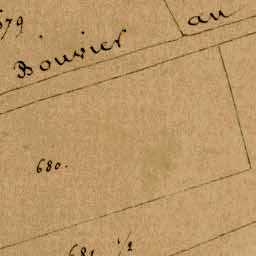 679
Bouvier au
680.
681 1/2